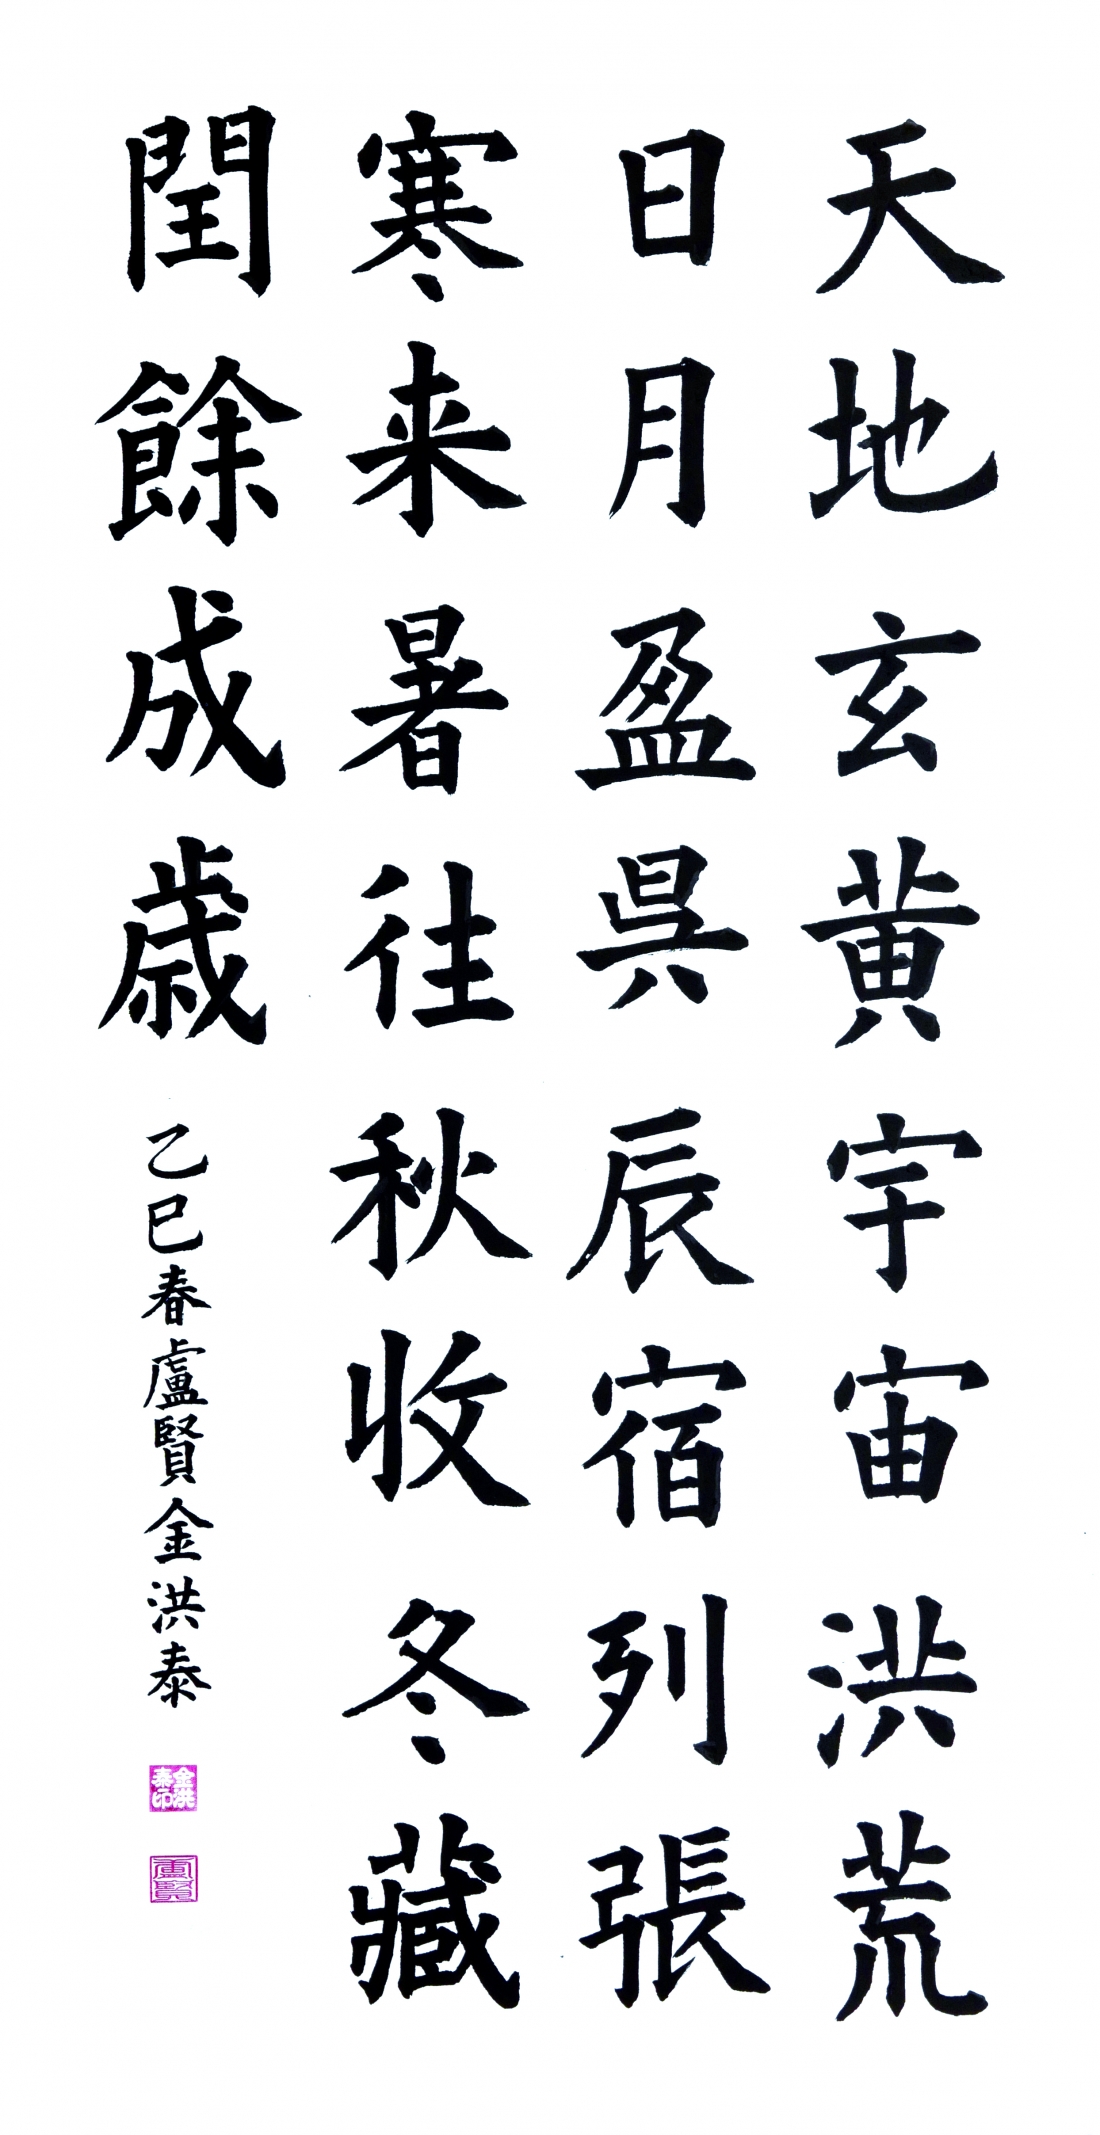 天地玄黄宇宙洪荒
日月盈昃辰宿列張
寒来暑往秋收冬藏
閏餘成歳
乙巳春盧賢金洪泰
金洪泰印
盧賢